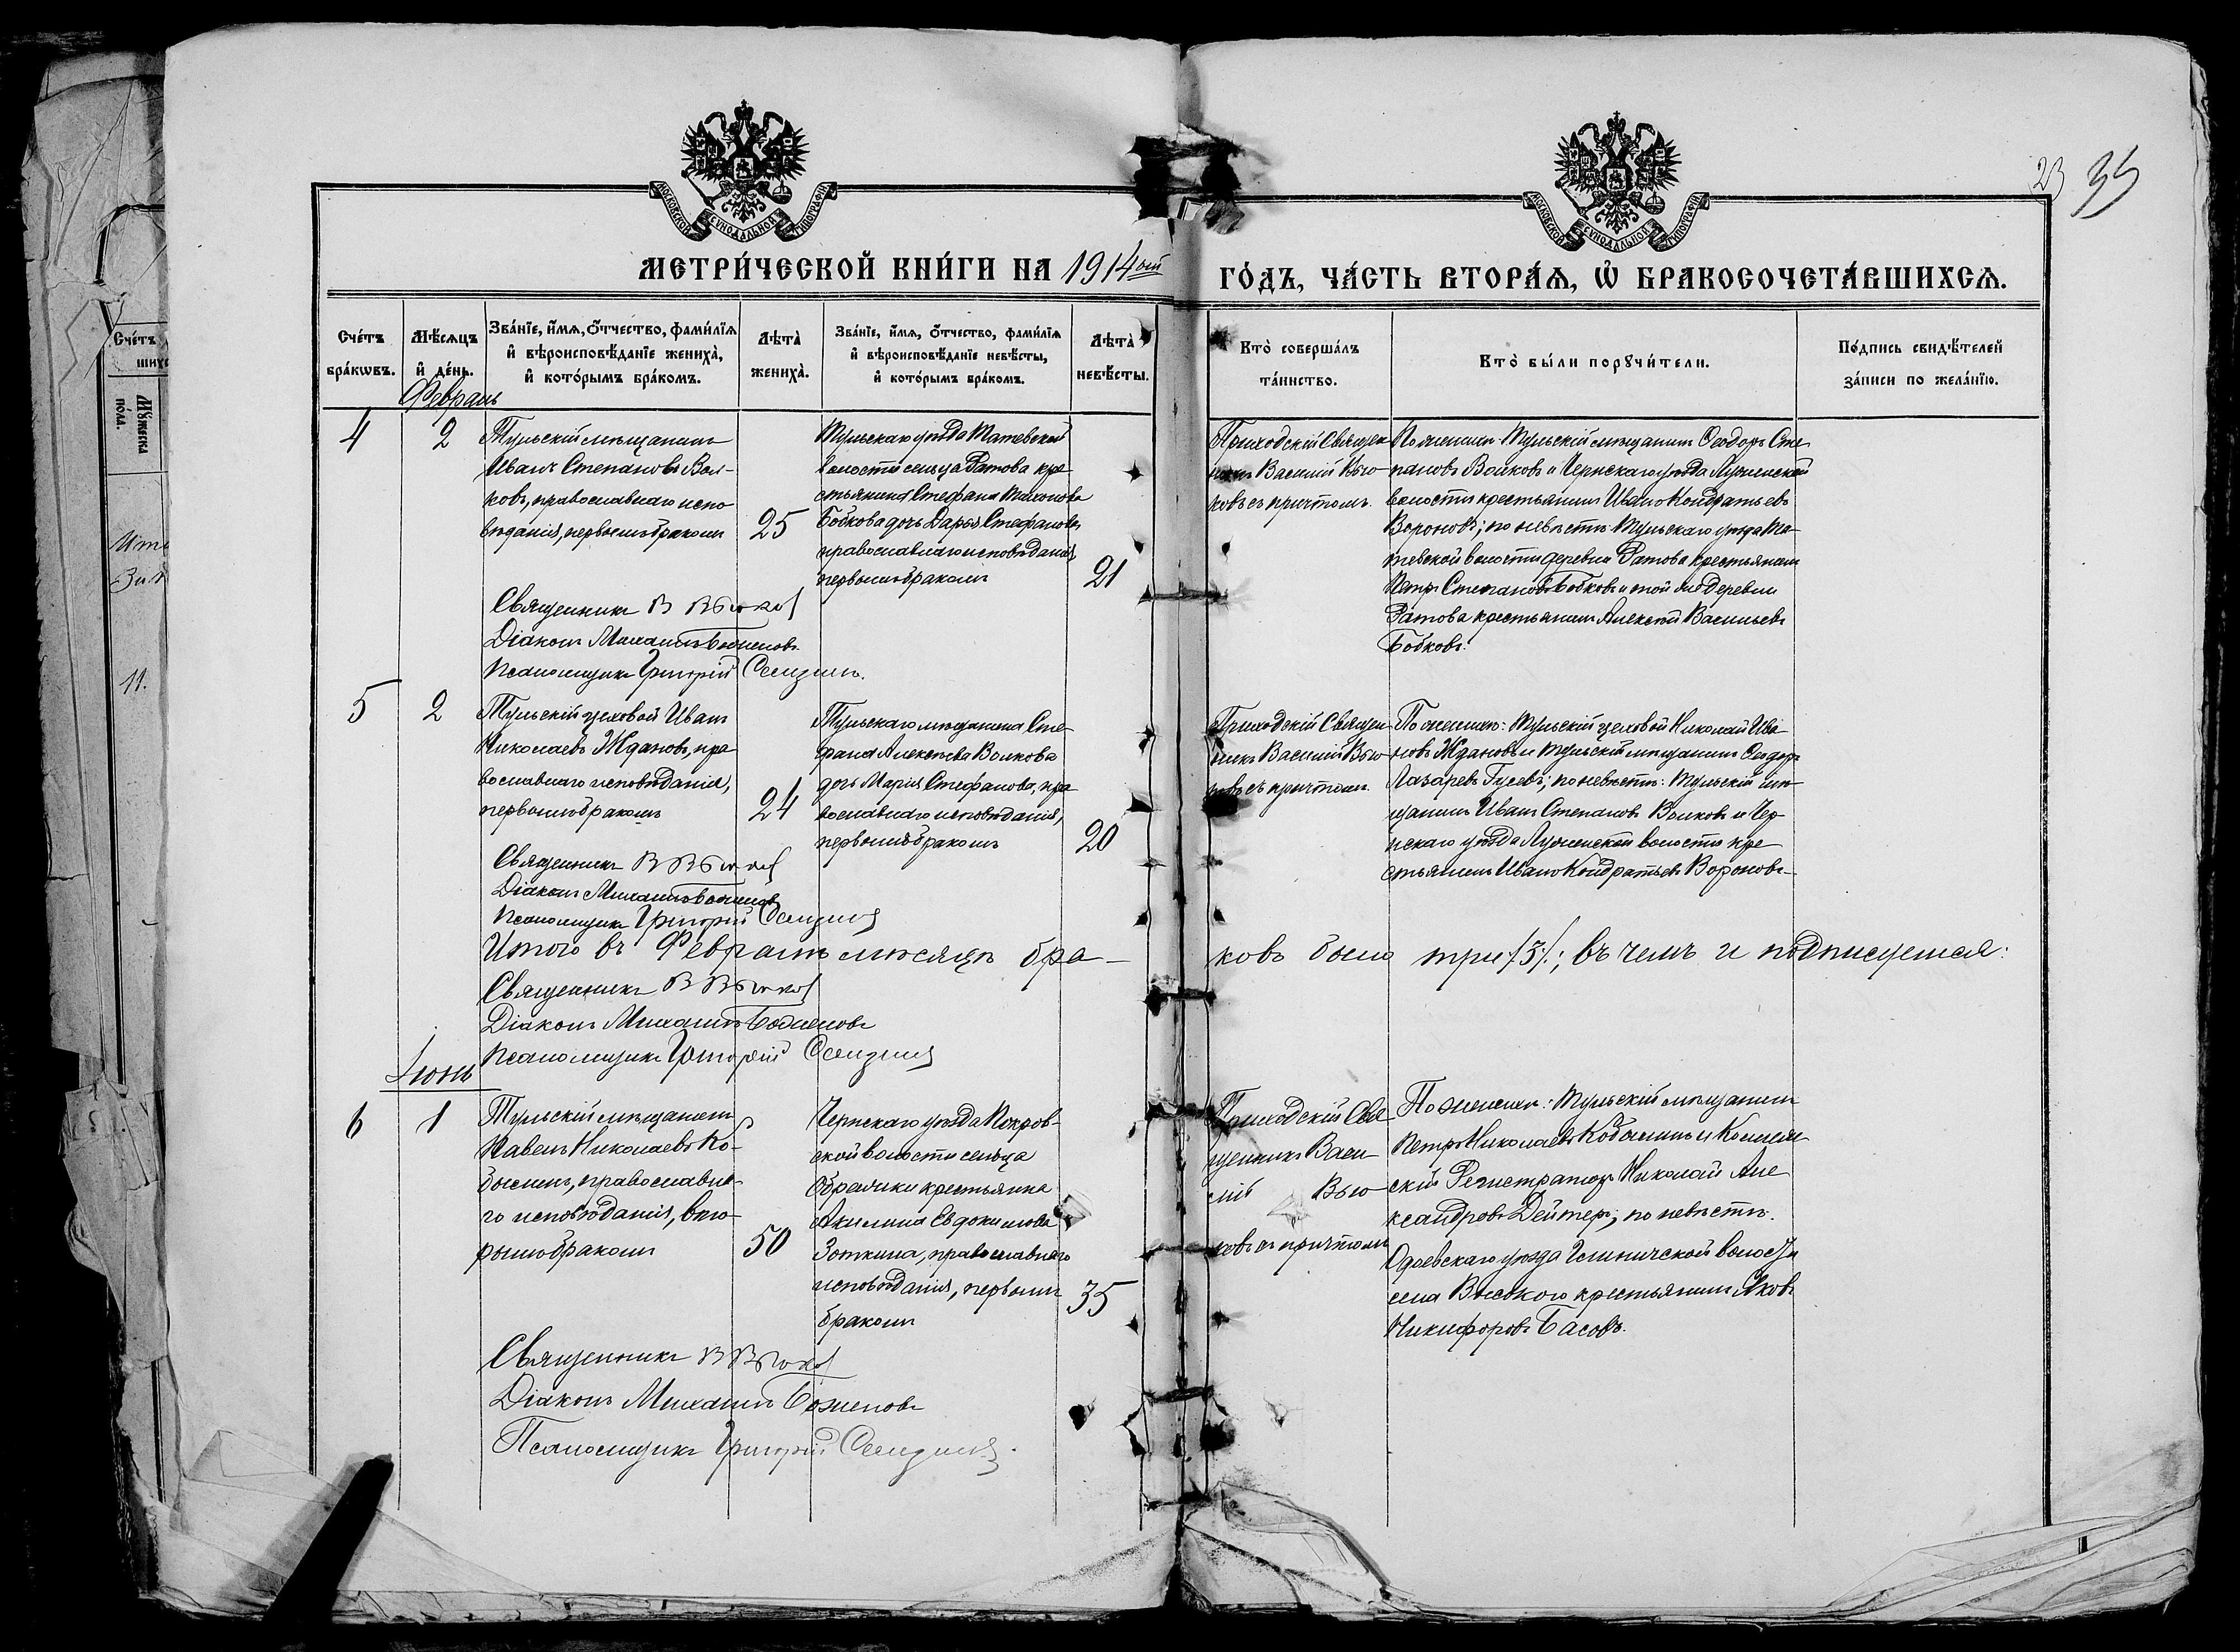 23 35
МОСКОВСКОЙ СѴНОДАЛЬНОЙ ТИПОГРАФІИ
МОСКОВСКОЙ СѴНОДАЛЬНОЙ ТИПОГРАФІИ
МЕТРИ́ЧЕСКОЙ КНИ́ГИ НА 1914ый
ГО́ДЪ, ЧА́СТЬ ВТОРА́Ѧ, Ѡ҆ БРАКОСОЧЕТА́ВШИХСѦ.
Сче́тъ бра́кѡвъ.
Мѣ́сѧцъ и҆ де́нь.
Зва́нїе, и҆́мѧ, о҆́тчество, фами́лїѧ
и҆ вѣроисповѣ́данїе жениха̀,
и҆ кото́рымъ бра́комъ.
Лѣта̀ жениха̀.
Зва́нїе, и҆́мѧ, о҆́тчество, фами́лїѧ
и҆ вѣроисповѣ́данїе невѣ́сты,
и҆ кото́рымъ бра́комъ.
Лѣта̀ невѣ́сты.
Кто̀ соверша́лъ
та́инство.
Кто̀ бы́ли порꙋчи́тели.
По́дпись свидѣ́телей
за́писи по жела́нїю.
Февраль
4
2
Тульскій мѣщанинъ
Иванъ Степановъ Вол-
ковъ, православнаго испо
вѣданія, первымъ бракомъ
25
Тульскаго уѣзда Татевской
волости сельца Ратова кре
стьянина Стефана Тихонова
Бобкова дочь Дарья Стефанова,
православнаго исповѣданія,
первымъ бракомъ
21
Приходскій Священ
никъ Василій Вью
ковъ съ причтомъ.
По женихѣ: Тульскій мѣщанинъ Ѳеодоръ Сте
пановъ Волковъ и Чернскаго уѣзда Луженской
волости крестьянинъ Иванъ Кондратьевъ
Вороновъ; по невѣстѣ: Тульскаго уѣзда Та-
тевской волости деревни Ратова крестьянинъ
Петръ Степановъ Бобковъ и той же деревни
Ратова крестьянинъ Алексѣй Васильевъ
Бобковъ.
Священникъ В Вьюков
Діаконъ Михаилъ Боженовъ
Псаломщикъ Григорій
5
2
Тульскій цеховой Иванъ
Николаевъ Ждановъ, пра
вославнаго исповѣданія,
первымъ бракомъ
24
Тульскаго мѣщанина Сте
фана Алексѣева Волкова
дочь Марія Стефанова, пра
вославнаго исповѣданія,
первымъ бракомъ
20
Приходскій Священ
никъ Василій Вью
ковъ съ причтомъ
По женихѣ: Тульскій цеховой Николай Ива
новъ Ждановъ и Тульскій мѣщанинъ Ѳеодоръ
Лазаревъ Гусевъ; по невѣстѣ: Тульскій мѣ
щанинъ Иванъ Степановъ Волковъ и Чер
нскаго уѣзда Луженской волости кре
стьянинъ Иванъ Кондратьевъ Вороновъ
Священникъ В Вьюков
Діаконъ Михаилъ Боженовъ
Псаломщикъ Григорій
Итого въ Февралѣ мѣсяцѣ бра-
ковъ было три /3/; въ чемъ и подписуемся:
Священникъ В Вьюков
Діаконъ Михаилъ Боженовъ
Псаломщикъ Григорій
Іюнь
6
1
Тульскій мѣщанинъ
Павелъ Николаевъ Ко-
былинъ, православна-
го исповѣданія, вто-
рымъ бракомъ
50
Чернскаго уѣзда Покров-
ской волости сельца
крестьянка
Акилина Евдокимова
Зоткина, православнаго
исповѣданія, первымъ
бракомъ
35
Приходскій Свя
щенникъ Васи
лій Вью
ковъ съ причтомъ
По женихѣ: Тульскій мѣщанинъ
Петръ Николаевъ Кобылинъ и Коллеж
скій Регистраторъ Николай Але
ксандровъ Дейтеръ; по невѣстѣ:
Одоевскаго уѣзда волости
села Высокого крестьянинъ Яковъ
Никифоровъ Басовъ.
Священникъ В Вьюков
Діаконъ Михаилъ Боженовъ
Псаломщикъ Григорій